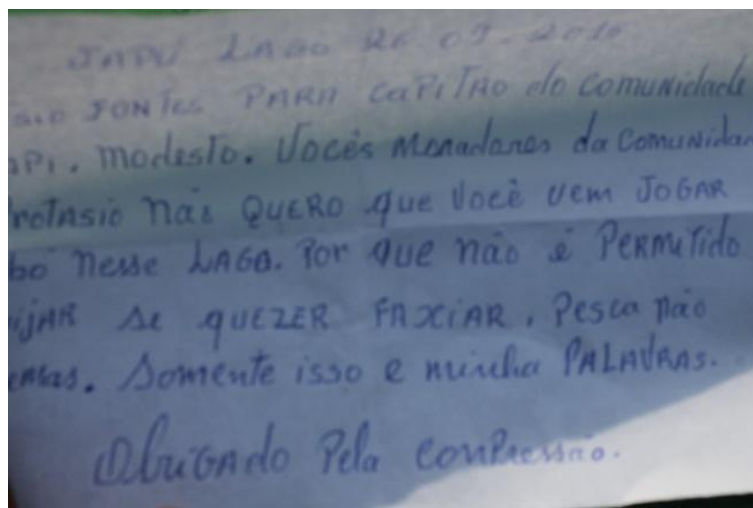 JAPÚ LAGO 26.09.2016
SIO FONTES PARA CAPITÃO do Comunidade
API. Modesto. Vocês Moradores da Comunidad
Protasio não QUERO que Você vem JOGAR
bó nesse LAGO. Por que não é PERMITIDO
se QUEZER FAXIAR, Pesca não
emas. Somente isso e minha PALAVRAS.
Obrigado Pela